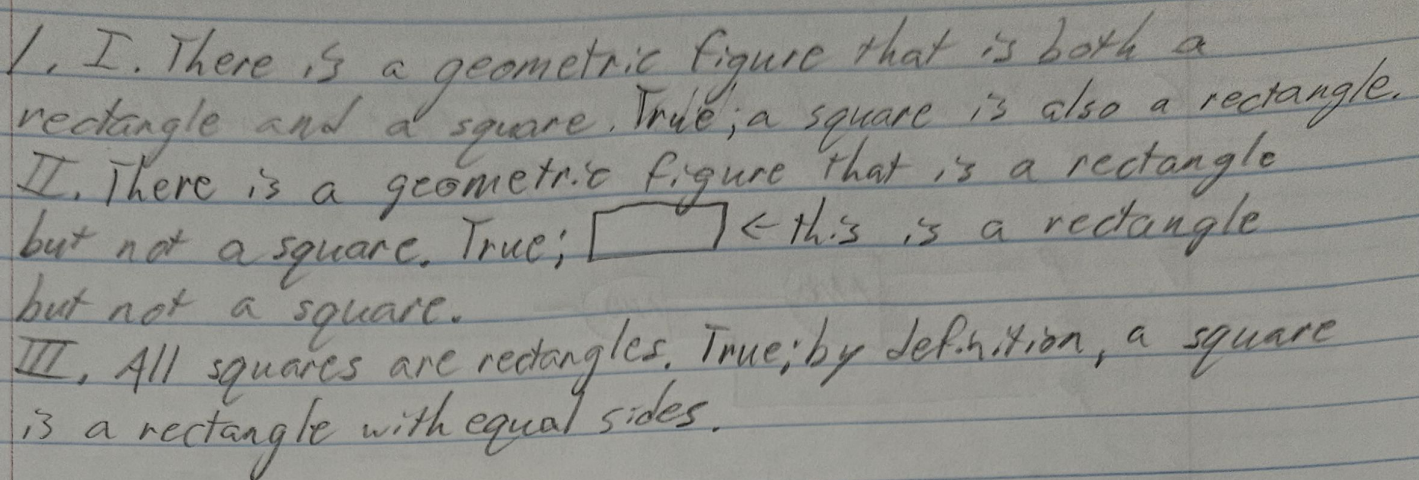 1. I. There is a geometric figure that is both a
rectangle and a square. True; a square is also a rectangle.
II. There is a geometric figure that is a rectangle
but not a square. True; ← this is a rectangle
but not a square.
III. All squares are rectangles. True; by definition, a square
is a rectangle with equal sides.